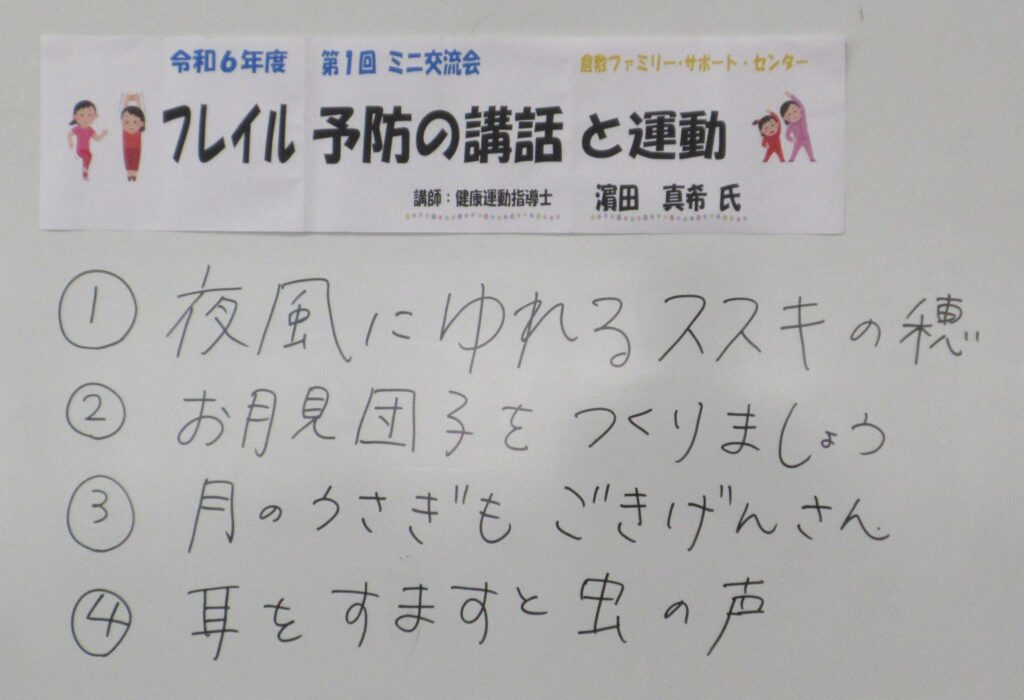 令和6年度 第1回 ミニ交流会 倉敷ファミリー・サポート・センター
フレイル予防の講話と運動
講師：健康運動指導士 濵田 真希 氏
① 夜風にゆれるススキの穂
② お月見団子をつくりましょう
③ 月のうさぎもごきげんさん
④ 耳をすますと虫の声